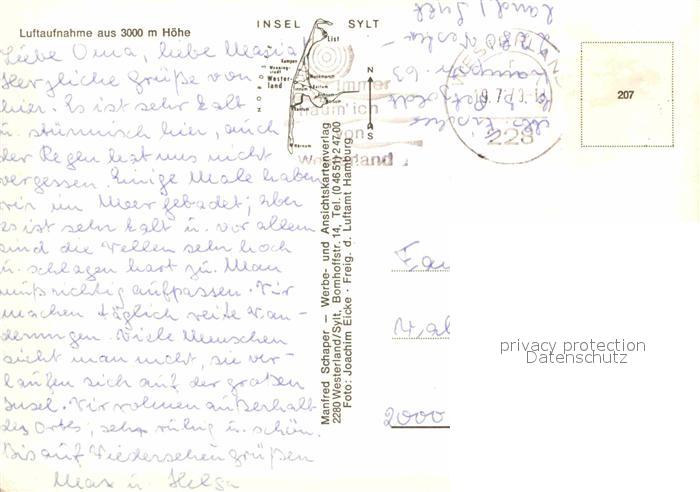 Luftaufnahme aus 3000 m Höhe
INSEL SYLT
List
Kampen
Wenningstedt
Westerland
Munkmarsch
Keitum
Rantum
Hörnum
N
S
207
Liebe Oma, liebe Maria!
Herzliche Grüße von
hier. Es ist sehr kalt
u. stürmisch hier, auch
der Regen hat uns nicht
vergessen. Einige Male haben
wir im Meer gebadet; aber
es ist sehr kalt u. vor allem
sind die Wellen sehr hoch
u. schlagen hart zu. Man
muß richtig aufpassen. Wir
machen täglich weite Wan-
derungen. Viele Menschen
sieht man nicht, sie ver-
laufen sich auf der großen
Insel. Wir wohnen außerhalb
des Ortes, sehr ruhig u. schön.
Bis auf Wiedersehen grüßen
Max u. Helga
Manfred Schaper – Werbe- und Ansichtskartenverlag
2280 Westerland/Sylt, Bomhoffstr. 14, Tel. (0 46 51) 2 47 00
Foto: Joachim Eicke · Freig. d. Luftamt Hamburg
träum' ich
von
Westerland
2000
privacy protection
Datenschutz